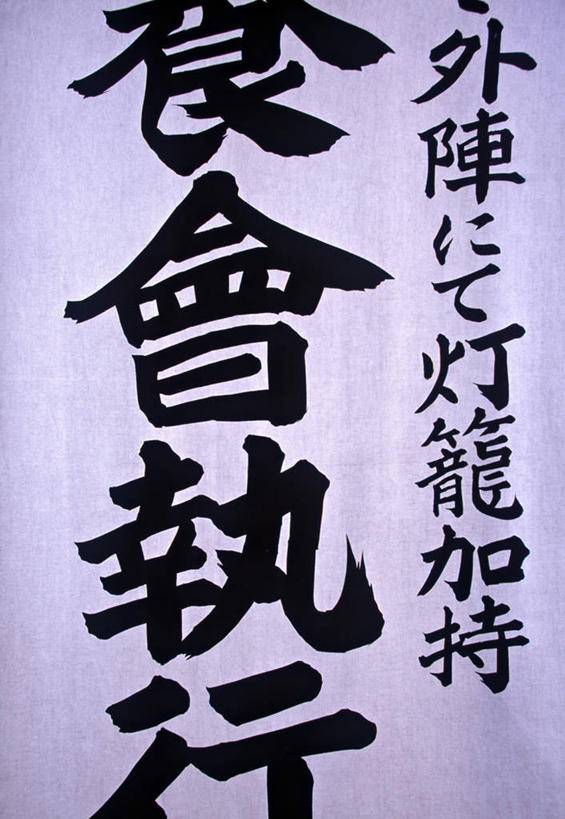 外陣にて灯籠加持
食會執行